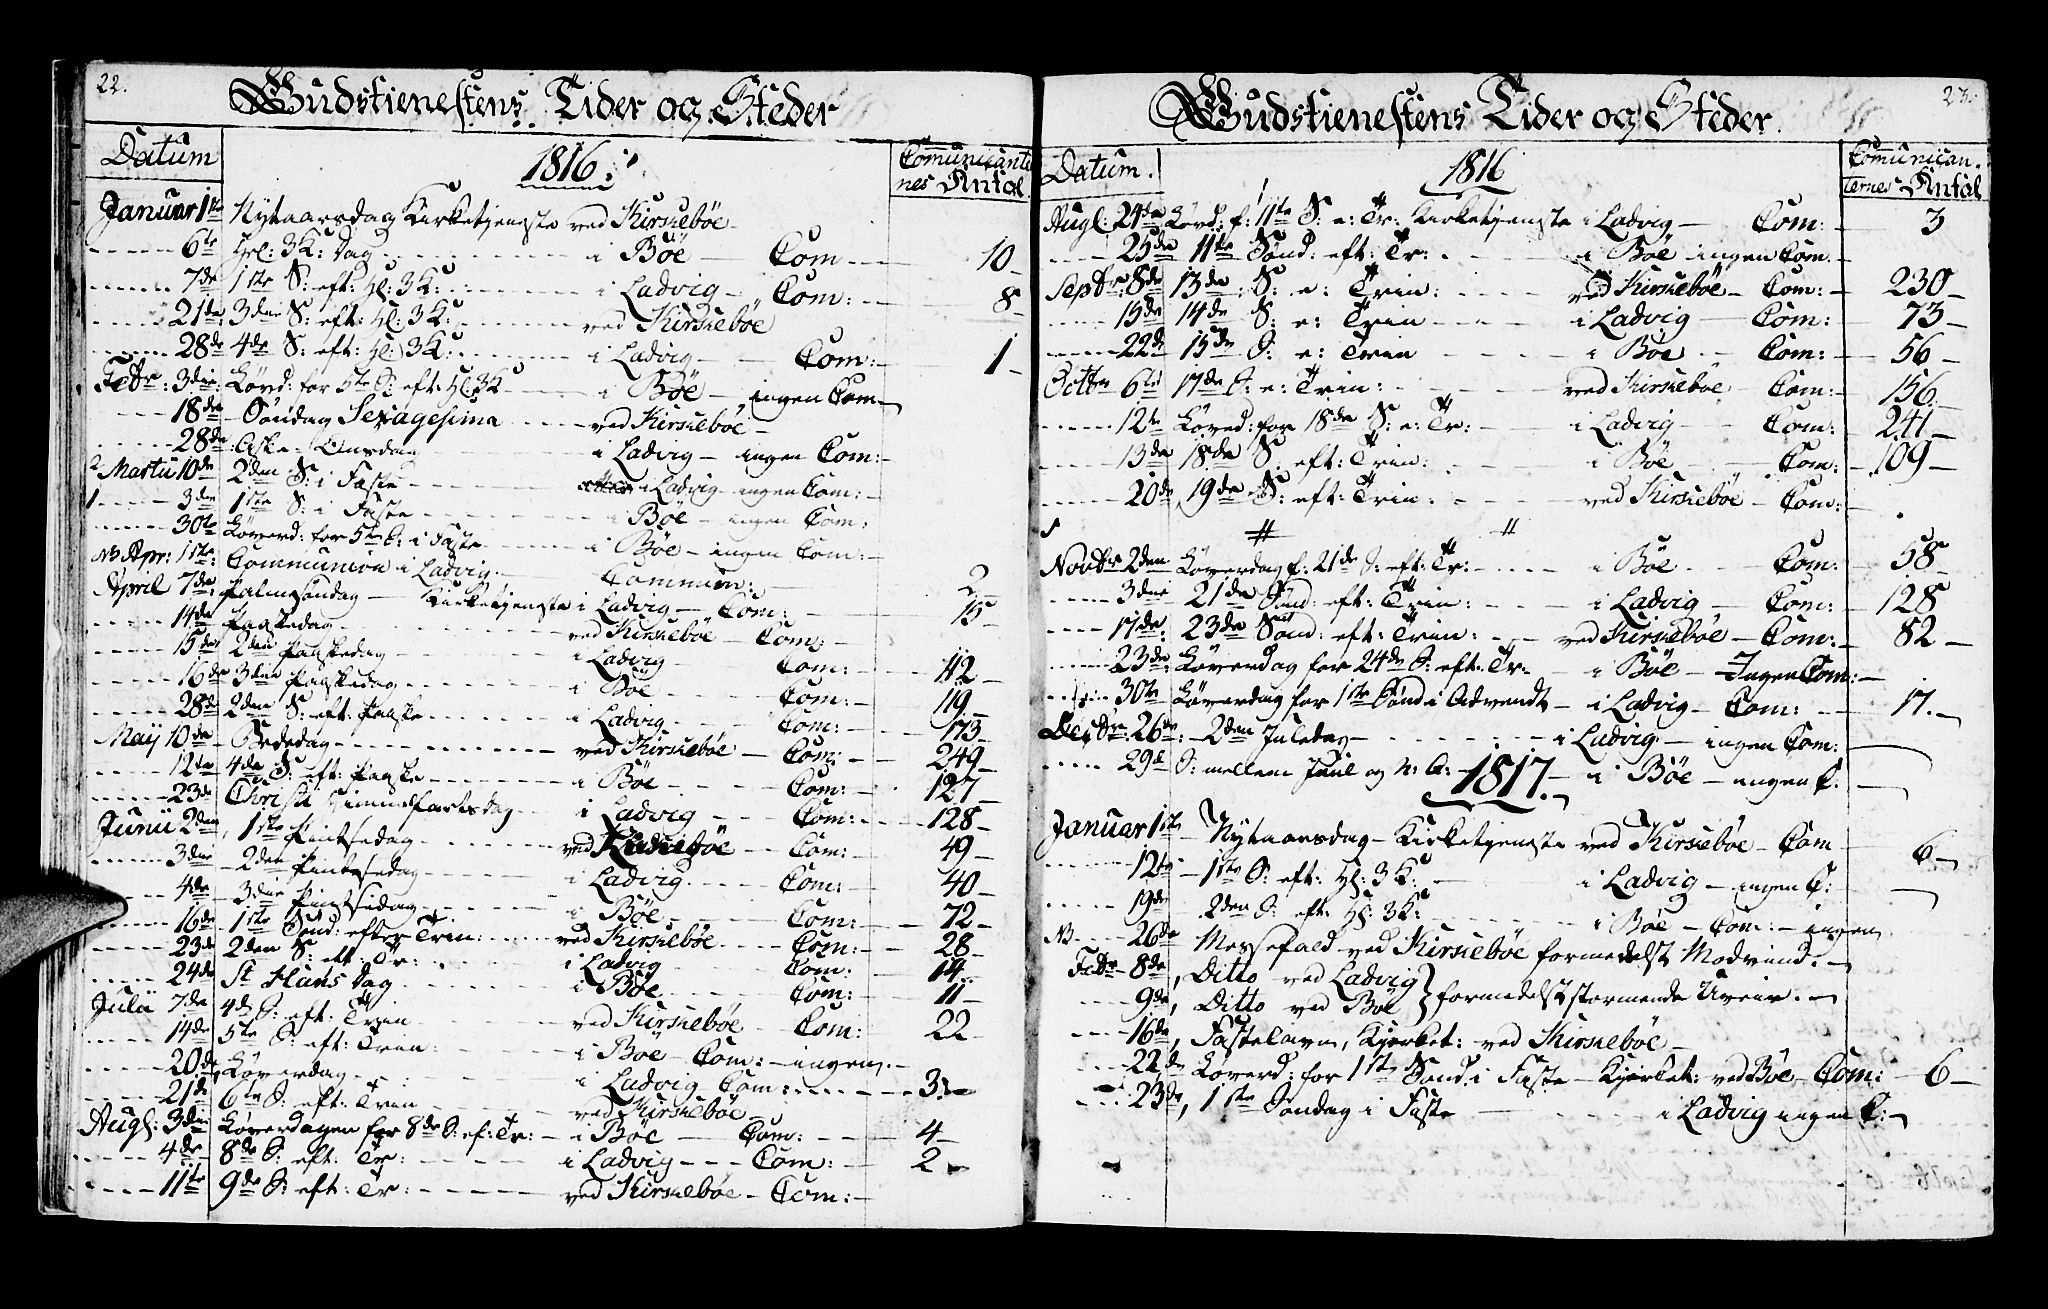 22.
Gudstienestens Tider og Steder
Datum 1816 Comunicante
nes Antal
Januar 1ste Nytaarsdag Kirketjenste ved Kirkebøe
6te Hel: 3K: Dag i Bøe Com 10
7de 1ste S: eft: Hl: 3K: i Ladvig Com: 8
21de 3die S: eft: Hl: 3K: ved Kirkebøe
28de 4de S: eft: Hl: 3K: i Ladvig Com: 1
Febr: 3die Løvd: for 5te S: eft: Hl: 3K i Bøe ingen Com
18de Søndag Sexagesima ved Kirkebøe
28de Aske-Onsdag i Ladvig ingen Com:
2 Martii 10de 2den S: i Faste i Ladvig ingen Com:
1 3die 1ste S: i Faste i Bøe ingen Com:
30te Løverd: for 5te S: i Faste i Bøe ingen Com:
NB Apr: 1ste: Communion i Ladvig Commun: 2
April 7de: Palmesøndag Kirketjenste i Ladvig Com: 15
14de Paaskedag ved Kirkebøe Com:
15de 2den Paaskedag i Ladvig Com: 112
16de 3die Paaskedag i Bøe Com: 119
28de 2den S: eft: Paaske i Ladvig Com: 173
Maij 10de Bededag ved Kirkebøe Com: 249
12te 4de S: eft: Paaske i Bøe Com: 127
23de Christi Himmelfartsdag i Ladvig Com: 128
Junii 2den 1ste Pintsedag ved Kirkebøe Com: 49
3die 2den Pintsedag i Ladvig Com: 40
4de 3die Pintsedag i Bøe Com: 72
16de 1ste Sønd: efter Trin: ved Kirkebøe Com: 28
23de 2den S: eft: Tr: i Ladvig Com: 14
24de St Hans Dag i Bøe Com: 11
Julii 7de 4de S: eft: Trin ved Kirkebøe Com: 22
14de 5te S: eft: Trin: i Bøe Com: ingen
20de Løverdag i Ladvig Com: 3
21de 6te S: eft: Trin ved Kirkebøe
Augl: 3die Løverdagen for 8de S: ef: Tr: i Bøe Com: 4
4de 8de S: eft: Tr: i Ladvig Com: 2
11te 9de S: eft: Tr: ved Kirkebøe Com:
23.
Gudstienestens Tider og Steder.
Datum. 1816 Comunican.
ternes Antal
Augl: 24de Løvd: f: 11te S: e: Tr: Kirketjenste i Ladvig Com: 3
25de 11te Sønd: eft: Tr: i Bøe ingen Com.
Septbr: 8de 13de S: e: Trin: ved Kirkebøe Com: 230
15de 14de S: e: Trin i Ladvig Com: 73
22de 15de S: e: Trin i Bøe Com: 56
Octbr 6te 17de S: e: Trin: ved Kirkebøe Com: 156
12te Løverd: for 18de S: e: Tr: i Ladvig Com: 241
13de 18de S. eft: Trin: i Bøe Com: 109
20de 19de S: eft: Trin: ved Kirkebøe Com:
Novbr 2den Løverdag f: 21de S: eft: Tr: i Bøe Com: 58
3die 21de Sønd: eft: Trin: i Ladvig Com: 128
17de: 23de Sønd: eft: Trin: ved Kirkebøe Com: 82
23de: Løverdag for 24de S: eft: Tr: i Bøe Ingen Com:
30te Løverdag for 1ste Sønd: i Advendt i Ladvig Com: 17.
Decbr: 26te: 2den Juledag i Ladvig ingen Com:
29de S: mellem Juul og N: A: i Bøe ingen C:
1817.
Januar 1ste Nytaarsdag Kirketjenste ved Kirkebøe Com 6
12te 1ste S: eft: Hl: 3K: i Ladvig ingen C:
19de 2den S: eft: Hl: 3K: i Bøe Com: ingen
NB 26de Messefald ved Kirkebøe formedelst Modvind.
Febr 8de, Ditto ved Ladvig
9de, Ditto ved Bøe } formedelst stormende Uveir.
16de, Fastelavn, Kjerket: ved Kirkebøe
22de Løverd: for 1ste Sønd: i Faste Kjerket: ved Bøe Com: 6
23de, 1ste Søndag i Faste i Ladvig ingen C: